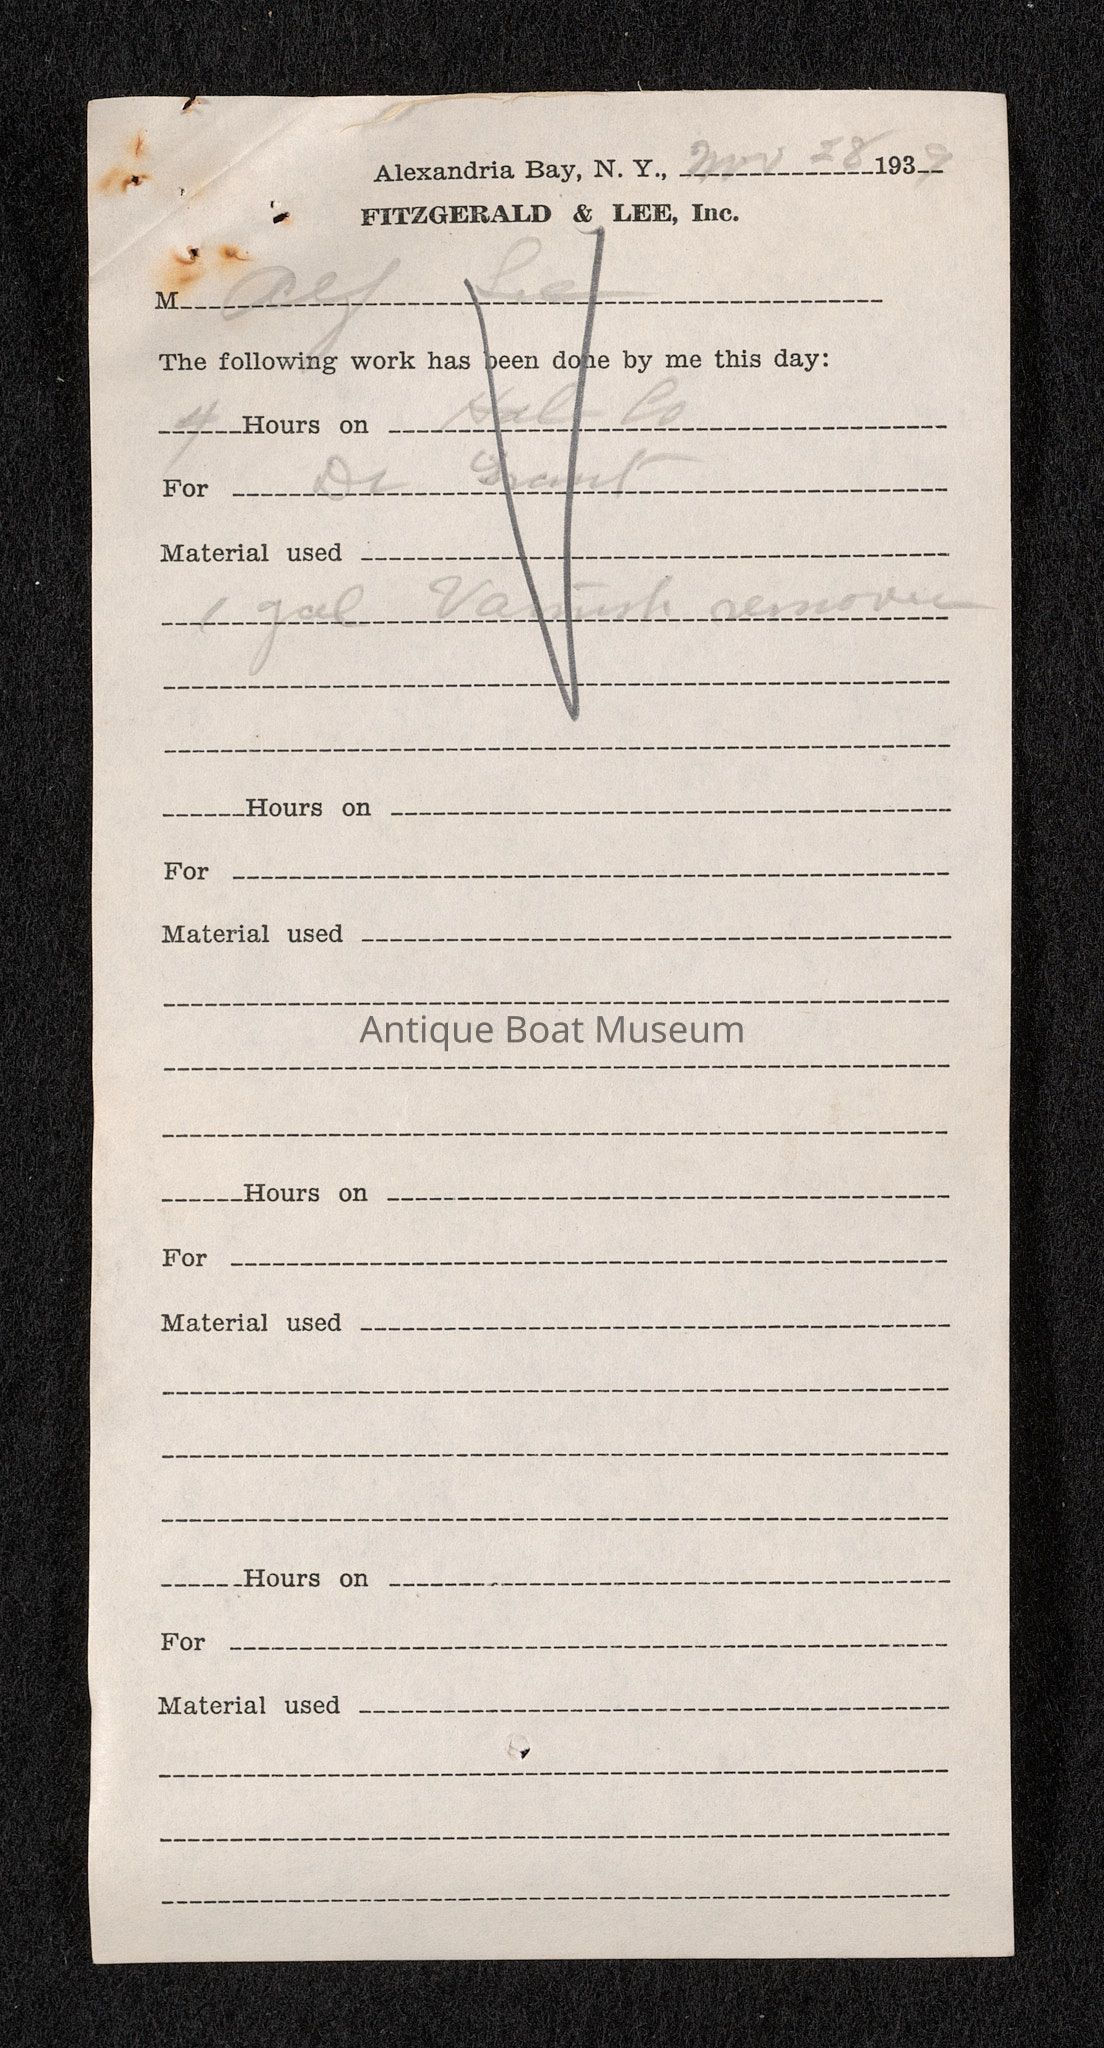 Alexandria Bay, N. Y., Nov 28 1939
FITZGERALD & LEE, Inc.
M Alf Lee
The following work has been done by me this day:
4 Hours on
For Dr Grant
Material used
1 gal Varnish remover
Hours on
For
Material used
Antique Boat Museum
Hours on
For
Material used
Hours on
For
Material used